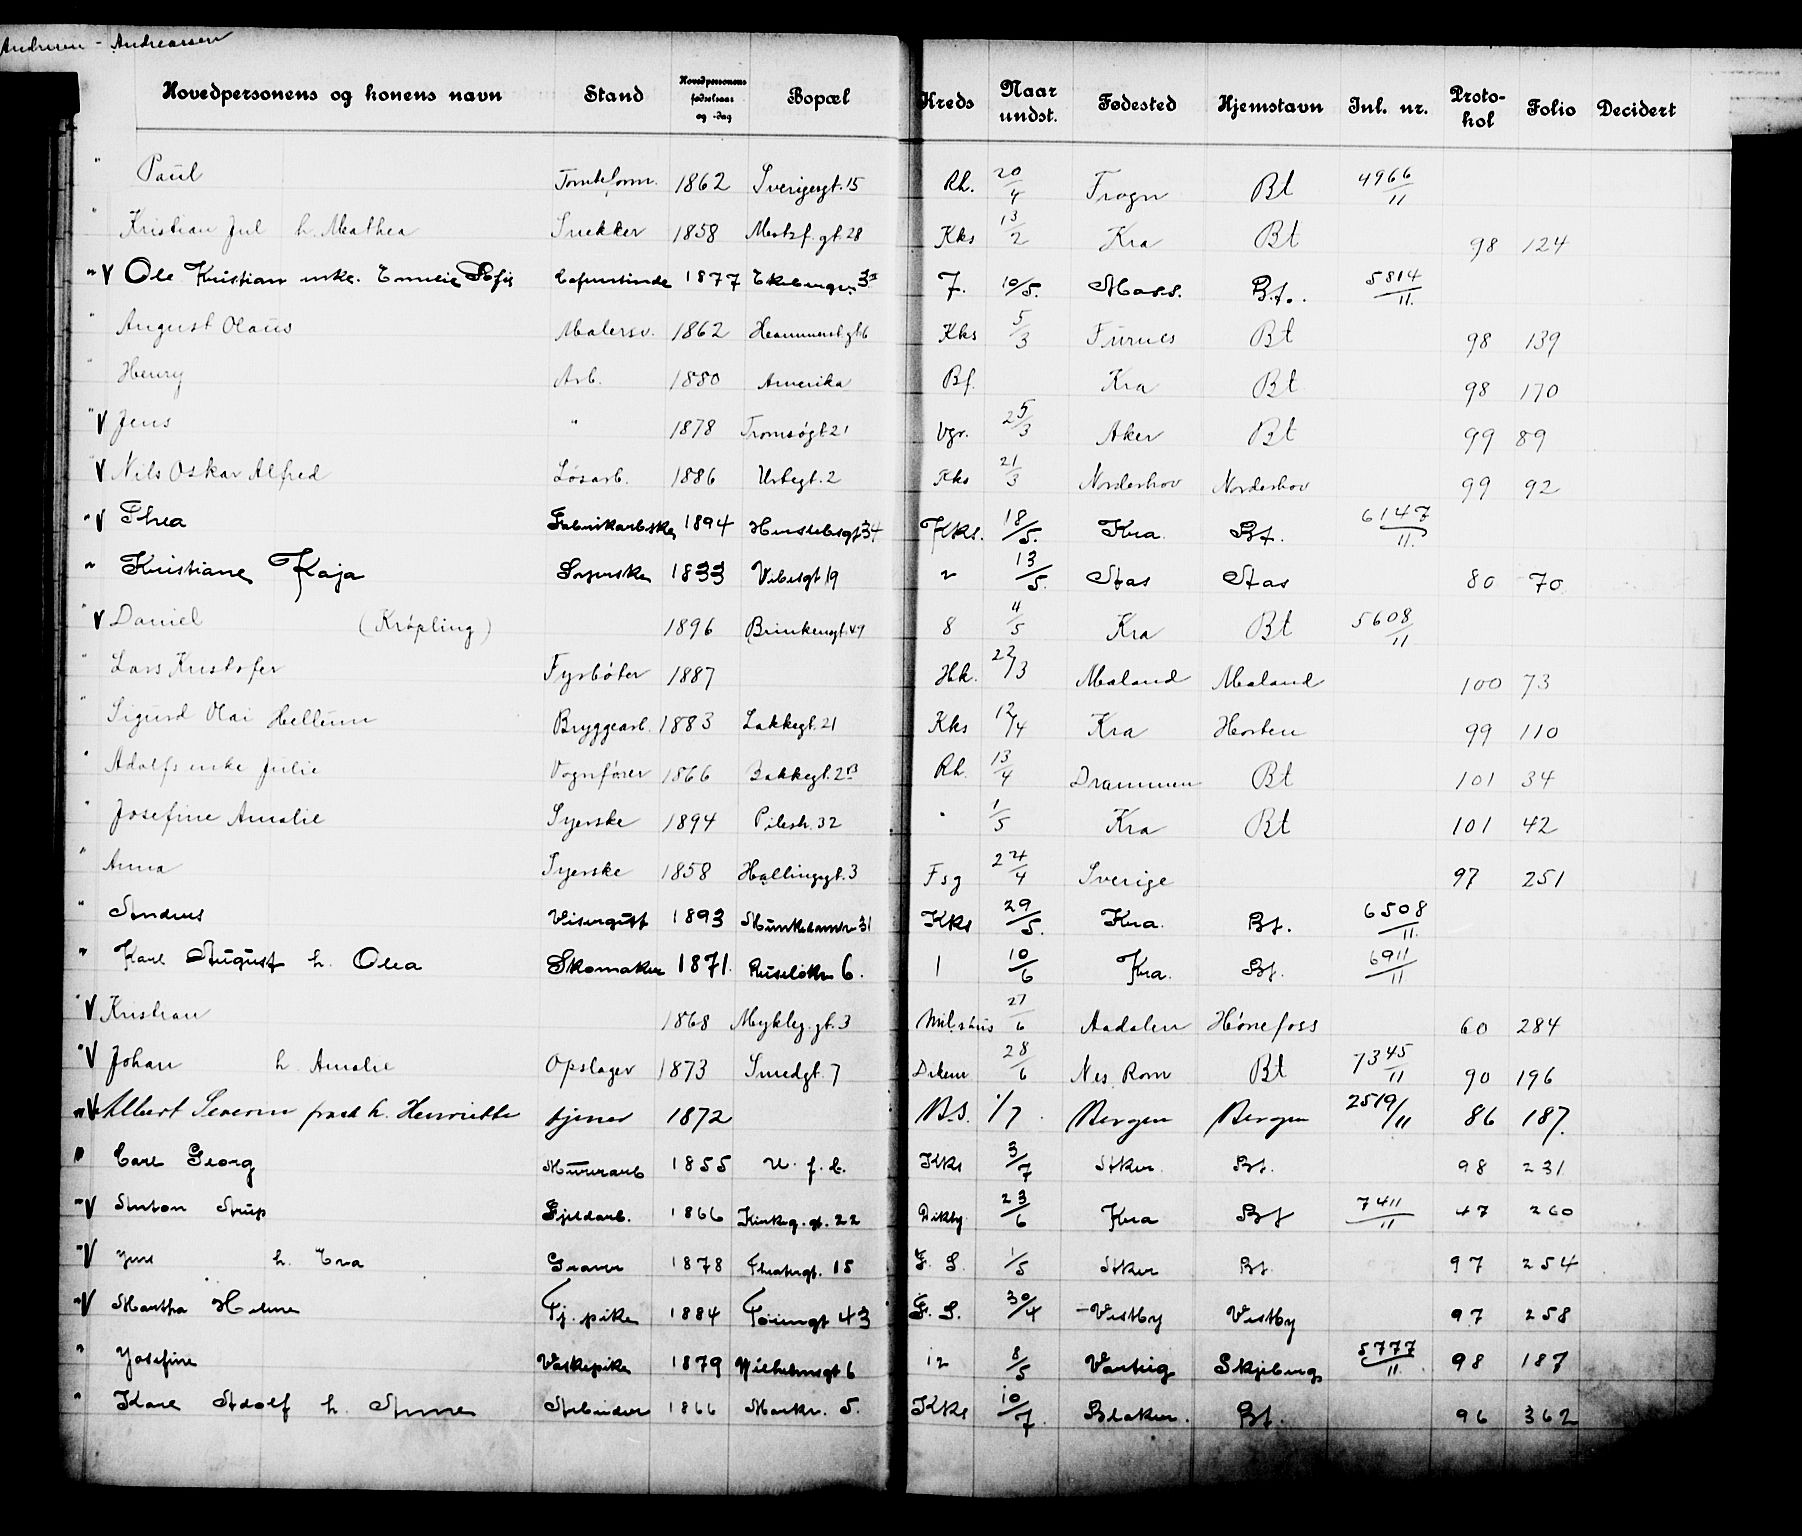 Andresen - Andreassen
Hovedpersonens og konens navn Stand Hovedpersonens fødselsaar og -dag Bopæl Kreds Naar undst. Fødested Hjemstavn Inl. nr. Proto-kol Folio Decidert
" Paul Tomteform. 1862 Sverigesgt. 15 Rh. 20/4 Frogn Bt 4966/11
" Kristian Jul h. Mathea Snekker 1858 gt. 28 Kks 13/2 Kra Bt 98 124
" V Ole Kristian enke. Emelie Sofie 1877 7. 10/5. Moss. Bt. 5814/11.
" August Olaus Malersv. 1862 Kks 5/3 Furnes Bt 98 139
" Henry Arb. 1880 Amerika Bf. Kra Bt 98 170
" V Jens " 1878 Tromsøgt 21 Vgr. 25/3 Aker Bt 99 89
" V Nils Oskar Alfred Løsarb. 1886 Urtegt. 2 Kks 21/3 Norderhov Norderhov 99 92
" V Thea Fabrikarbske 1894 34 Kks. 18/5. Kra. Bt. 6147/11.
" Kristiane Kaja Syerske 1833 Vibesgt 19 " 13/5. Aas Aas 80 70
" V Daniel (Krøpling) 1896 Brinkengt. 49 8 4/5 Kra Bt 5608/11
" Lars Kristofer Fyrbøter 1887 Hk. 22/3 Maland Maland 100 73
" Sigurd Olai Hellum Bryggearb. 1883 Lakkegt. 21 Kks 12/4 Kra Horten 99 110
" Adolfs enke Julie Vognfører 1866 Bakkegt. 2B Rh. 13/4 Drammen Bt 101 34
" Josefine Amalie Syerske 1894 Pilestr. 32 " 1/5 Kra Bt 101 42
" Anna Syerske 1858 Hallingsgt. 3 Fsg 24/4 Sverige 97 251
" Anders Visergut 1893 Munkedamsv 31 Kks 29/5. Kra. Bt. 6508/11.
" Karl August h. Olea Skomaker 1871. Ruseløkv 6. 1 10/6 Kra. Bt. 6911/11
" V Kristian 1868 Mykleg. gt. 3 21/6 Aadalen Hønefoss 60 284
" V Johan h. Amalie Opslager 1873 Smedgt. 7 Dikem 28/6 Nes, Rom Bt 7345/11 90 196
" V Albert Severin frask h. Henriette tjener 1872 B.S. 1/7. Bergen Bergen 2519/11 86 187.
" Carl Georg Murerarb 1855 U. f. b. Kks 3/7 Aker. Bt. 98 231
" V Anton Arup Fjeldarb. 1866 Kirkeg. gt. 22 23/6 Kra Bt 7411/11 47 260
" V Jens h. Eva Graver 1878 Theatergt. 15 F. S. 1/5 Aker Bt 97 254
" V Martha Helene Tj. pike 1884 Tøiengt 43 F. S. 30/4 Vestby Vestby 97 258
" Josefine Vaskepike 1879 Wilhelmsgt 6 12 8/5 Varteig Skjeberg 5777/11. 98 187
" Karl Adolf h. Anne Arbeider 1866 Markv. 5. Kks 10/7. Blaker. Bt. 96 362